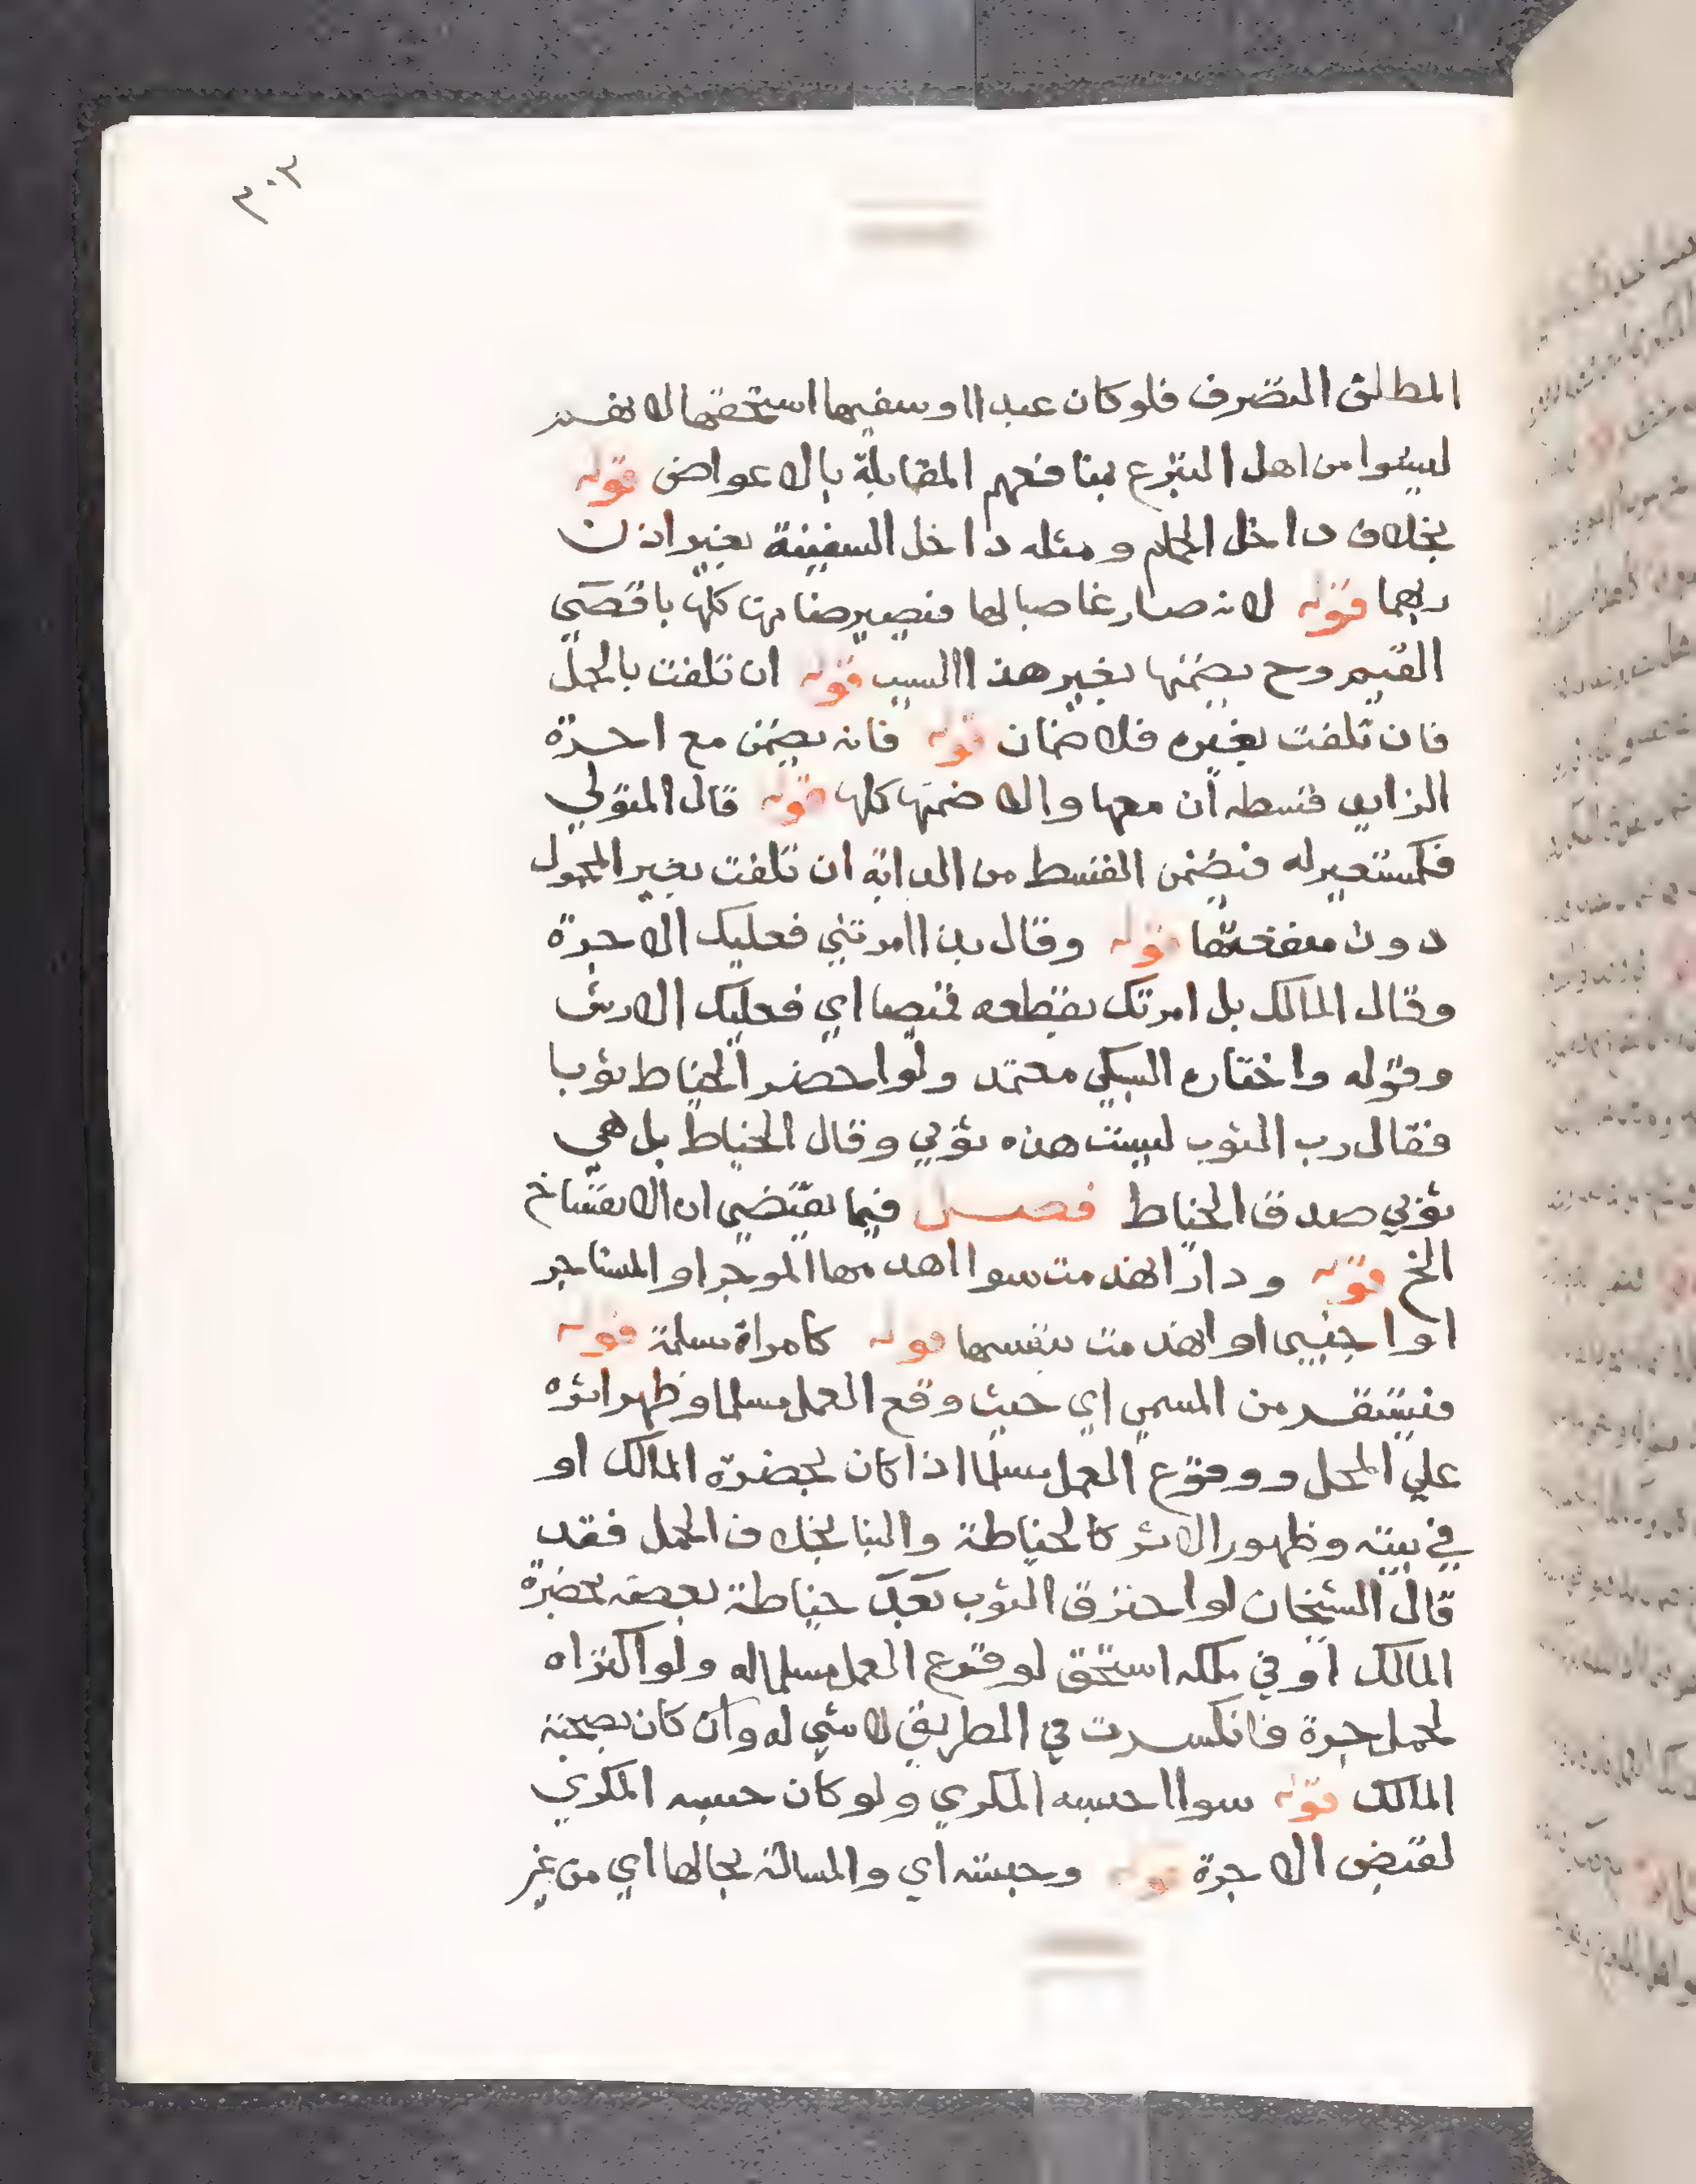 ٣٠٣
المطلق التصرف فلو كان عبدا او سفيها استحقها لانهم
ليسوا من اهل التبرع بمنافعهم المقابلة بالاعواض قوله
بخلاف داخل الحمام ومثله داخل السفينة بغير اذن
ربهما قوله لانه صار غاصبا لها فيصير ضامنا كلها باقصى
القيم وح يضمنها بغير هذا السبب قوله ان تلفت بالحمل
فان تلفت بغيره فلا ضمان قوله فانه يضمن مع اجرة
الزايد قسطه ان معها والا ضمنها كلها قوله قال المتولي
فكمستعير له فيضمن القسط من الدابة ان تلفت بغير المحمول
دون منفعتها قوله وقال بذا امرتني فعليك الاجرة
وقال المالك بل امرتك بقطعه قميصا اي فعليك الارش
وقوله واختاره السبكي معتمد ولو احضر الخياط ثوبا
فقال رب الثوب ليست هذه ثوبي وقال الخياط بل هي
ثوبي صدق الخياط فصل فيما يقتضي الانفساخ
الخ قوله ودار انهدمت سوا اهدمها الموجر او المستاجر
او اجنبي او انهدمت بنفسها قوله كامراة مسلمة قوله
فيستقر من المسمي اي حيث وقع العمل مسلما وظهر اثره
علي المحل ووقوع العمل مسلما اذا كان بحضرة المالك او
في بيته وظهور الاثر كالخياطة والبنا بخلاف الحمل فقد
قال الشيخان لو احترق الثوب بعد خياطة بعضه بحضرة
المالك او في ملكه استحق لوقوع العمل مسلما له ولو اكتراه
لحمل جرة فانكسرت في الطريق لا شي له وان كان بصحبة
المالك قوله سوا احبسه المكري ولو كان حبسه المكري
لقبض الاجرة قوله وحبسته اي والمسالة بحالها اي من غير